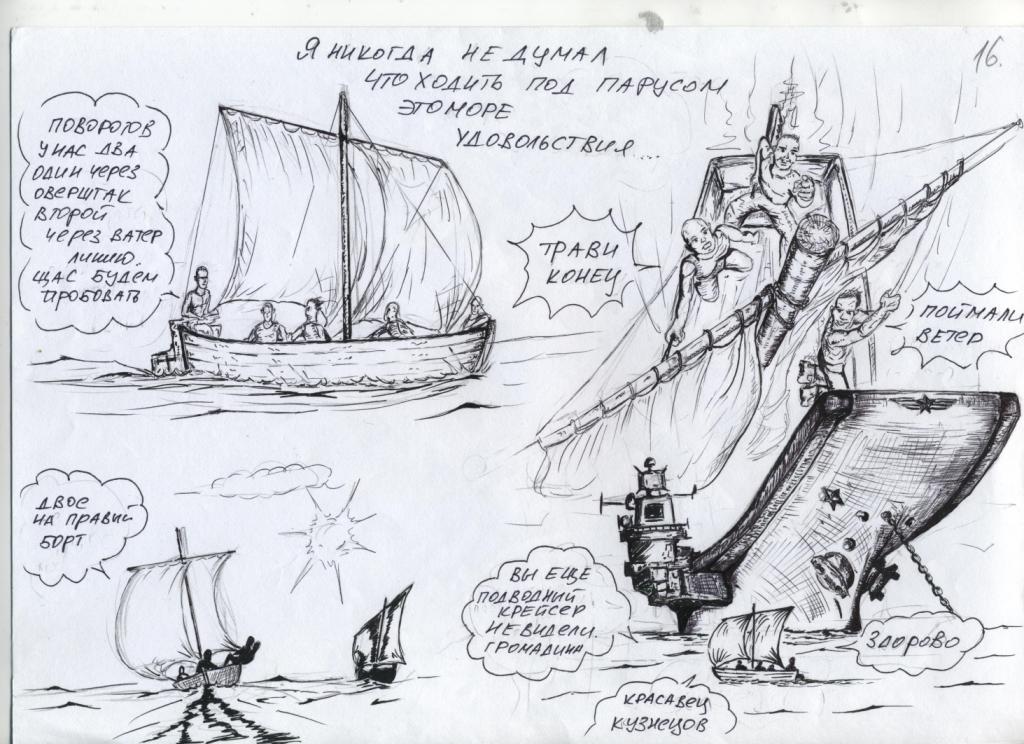 16.
Я НИКОГДА НЕ ДУМАЛ
ЧТО ХОДИТЬ ПОД ПАРУСОМ
ЭТО МОРЕ
УДОВОЛЬСТВИЯ...
ПОВОРОТОВ
У НАС ДВА
ОДИН ЧЕРЕЗ
ОВЕРШТАК
ВТОРОЙ
ЧЕРЕЗ ВАТЕР
ЛИНИЮ.
ЩАС БУДЕМ
ПРОБОВАТЬ
ТРАВИ
КОНЕЦ
ПОЙМАЛИ
ВЕТЕР
ДВОЕ
НА ПРАВЫЙ
БОРТ
ВЫ ЕЩЕ
ПОДВОДНЫЙ
КРЕЙСЕР
НЕ ВИДЕЛИ.
ГРОМАДИНА
ЗДОРОВО
КРАСАВЕЦ
КУЗНЕЦОВ